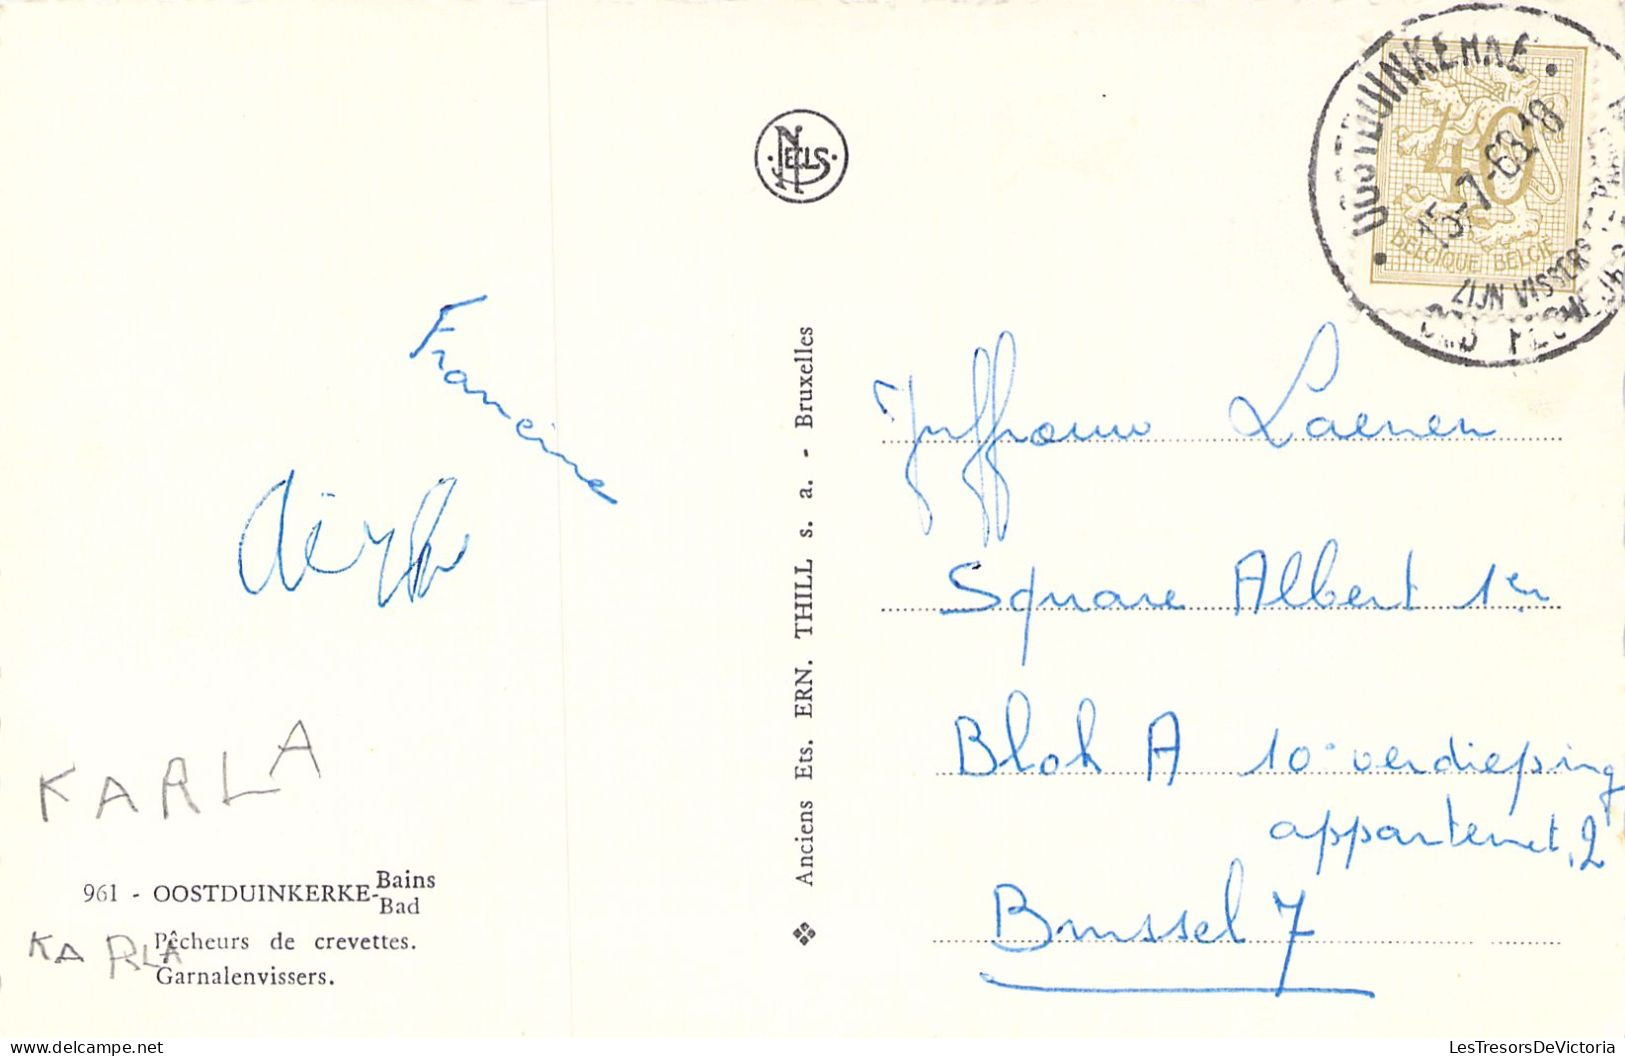 Francine
KARLA
961 - OOSTDUINKERKE-Bains
Bad
Pêcheurs de crevettes.
KARLA
Garnalenvissers.
NELS
Anciens Ets. ERN. THILL s. a. - Bruxelles
OOSTDUINKERKE
15-7-63 18
ZIJN VISSERS
40
BELGIQUE BELGIË
Juffrouw Laenen
Square Albert 1er
Blok A 10e verdieping
appartement 2
Brussel 7
LesTresorsDeVictoria